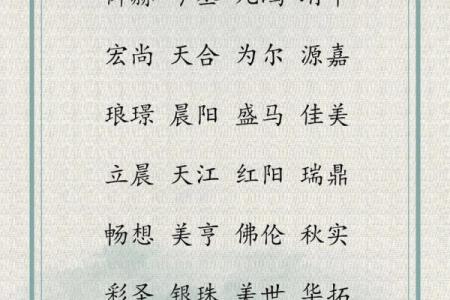 宏尚 天合 为尔 源嘉
琅璟 晨阳 盛马 佳美
立晨 天江 红阳 瑞鼎
畅想 美亨 佛伦 秋实
彩圣 银珠 美世 华拓